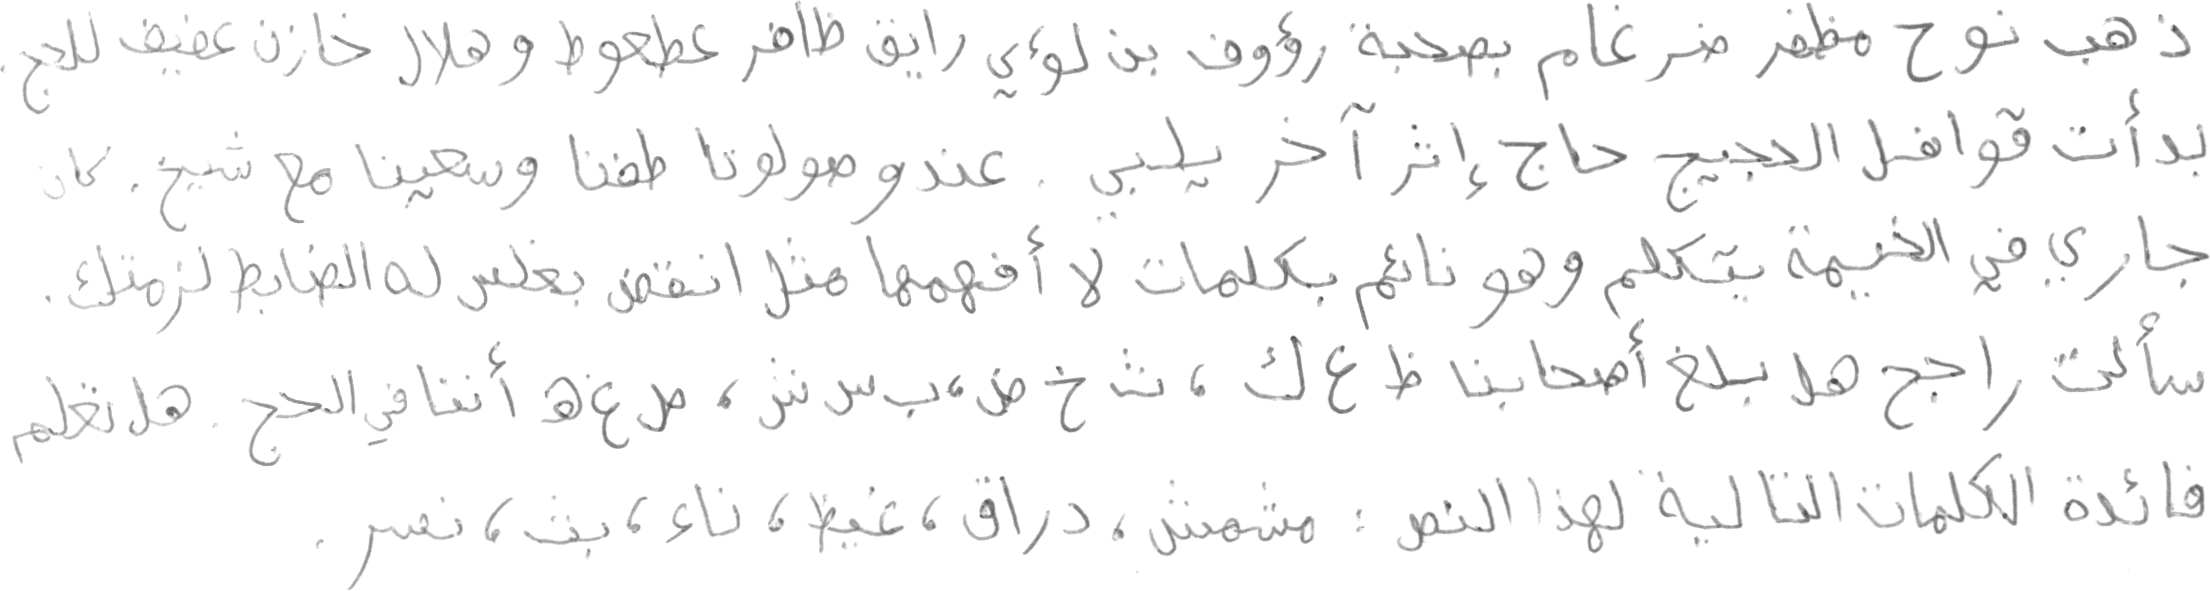 ذهب نوح مظفر ضرغام بصحبة رؤوف بن لؤي رايق ظافر عطعوط و هلال خازن عفيف للحج.
بدأت قوافل الحجيج حاج إثر آخر يلبي. عندو صولونا طفنا وسعينا مع شيخ. كان
جاري في الخيمة يتكلم وهو نائم بكلمات لا أفهمها مثل انقض بغلس له الضابط لزمتك.
سألت راجح هل بلغ أصحابنا ظ ع ك، ث خ ض، ب س ش، ص غ ه أننا في الحج. هل تعلم
فائدة الكلمات التالية لهذا النص: مشمش، دراق، غيظ، ناء، بث، نسر.